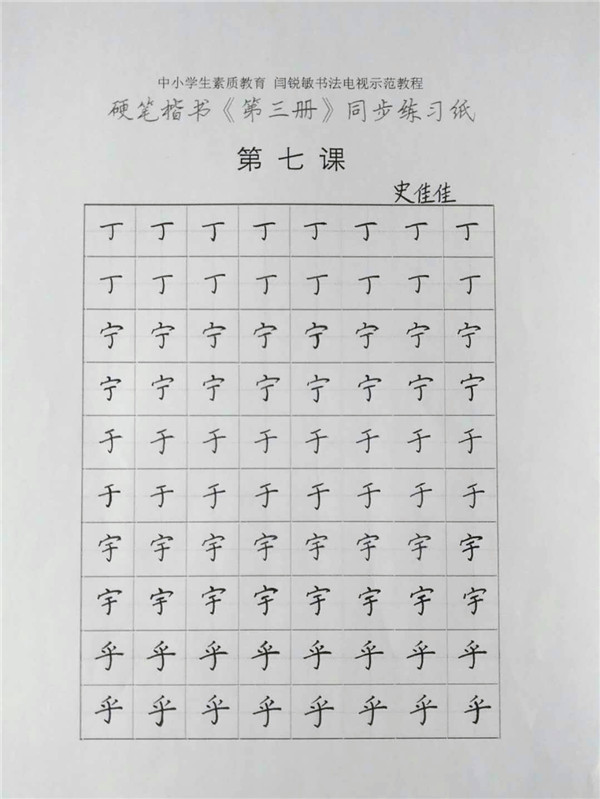 中小学生素质教育 闫锐敏书法电视示范教程
硬笔楷书《第三册》同步练习纸
第七课
史佳佳
丁丁丁丁丁丁丁丁
丁丁丁丁丁丁丁丁
宁宁宁宁宁宁宁宁
宁宁宁宁宁宁宁宁
于于于于于于于于
于于于于于于于于
宇宇宇宇宇宇宇宇
宇宇宇宇宇宇宇宇
乎乎乎乎乎乎乎乎
乎乎乎乎乎乎乎乎